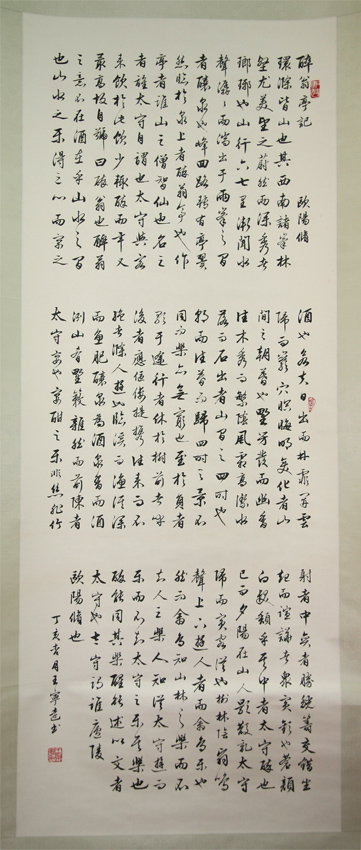 醉翁亭記 歐陽脩
環滁皆山也其西南諸峯林
壑尤美望之蔚然而深秀者
瑯琊也山行六七里漸聞水
聲潺潺而瀉出于兩峯之間
者釀泉也峰回路轉有亭翼
然臨於泉上者醉翁亭也作
亭者誰山之僧智仙也名之
者誰太守自謂也太守與客
來飲於此飲少輒醉而年又
最高故自號曰醉翁也醉翁
之意不在酒在乎山水之間
也山水之樂得之心而寓之
酒也若夫日出而林霏開雲
歸而巖穴暝晦明變化者山
間之朝暮也野芳發而幽香
佳木秀而繁陰風霜高潔水
落而石出者山間之四時也
朝而往暮而歸四時之景不
同而樂亦無窮也至於負者
歌于途行者休於樹前者呼
後者應傴僂提攜往來而不
絕者滁人遊也臨溪而漁溪深
而魚肥釀泉為酒泉香而酒
洌山肴野蔌雜然而前陳者
太守宴也宴酣之樂非絲非竹
射者中奕者勝觥籌交錯坐
起而諠譁者衆賓歡也蒼顏
白髮頹乎其中者太守醉也
已而夕陽在山人影散亂太守
歸而賓客從也樹林陰翳鳴
聲上下遊人去而禽鳥樂也
然而禽鳥知山林之樂而不
知人之樂人知從太守遊而
樂而不知太守之樂其樂也
醉能同其樂醒能述以文者
太守也太守謂誰廬陵
歐陽脩也
丁亥杏月王寧書